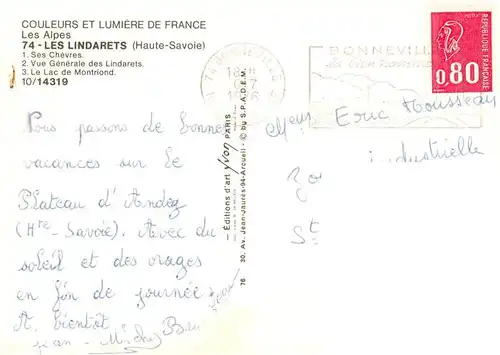 COULEURS ET LUMIÈRE DE FRANCE
Les Alpes
74 - LES LINDARETS (Haute-Savoie)
1. Ses Chèvres.
2. Vue Générale des Lindarets.
3. Le Lac de Montriond.
10/14319
Nous passons de bonne
vacances sur le
Plateau d'Andez
(Hte-Savoie). Avec du
soleil et des orages
en fin de journée
A bientôt
Jean-
— Éditions d'art Yvon PARIS
30, Av. Jean-Jaurès-94-Arcueil - © by S.P.A.D.E.M.
76
74 BONNEVILLE
18 H
BONNEVILLE
0,80
REPUBLIQUE FRANÇAISE
Eric Rousseau
industrielle
Zo
St